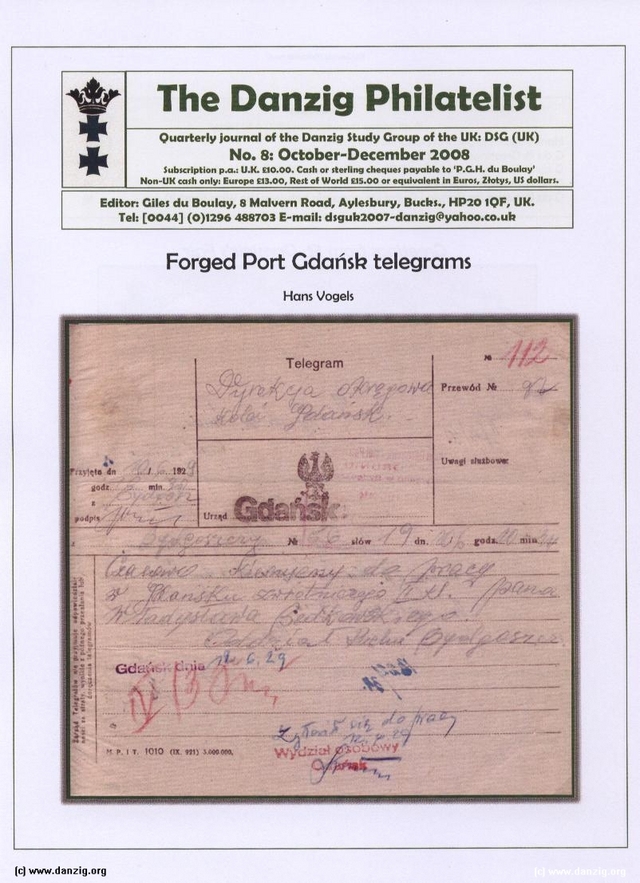 The Danzig Philatelist
Quarterly journal of the Danzig Study Group of the UK: DSG (UK)
No. 8: October-December 2008
Subscription p.a.: U.K. £10.00. Cash or sterling cheques payable to 'P.G.H. du Boulay'
Non-UK cash only: Europe £13.00, Rest of World £15.00 or equivalent in Euros, Złotys, US dollars.
Editor: Giles du Boulay, 8 Malvern Road, Aylesbury, Bucks., HP20 1QF, UK.
Tel: [0044] (0)1296 488703 E-mail: dsguk2007-danzig@yahoo.co.uk
Forged Port Gdańsk telegrams
Hans Vogels
Telegram
№ 112
Dyrekcja okręgowa
Kolei Gdańsk.
Przewód №
Uwagi służbowe:
Przyjęto dn 1929
godz. min.
z Bydgosz
podpis
Urząd Gdańsk
z Bydgoszczy № 66 słów 19 dn. godz. 10 min 14
Czasowo do pracy
w II kl. pana
Władysława
Oddział Bydgoszcz
Gdańsk dnia 12.6.29
Zgłosił się do pracy
Wydział osobowy
M. P. i T. 1010 (IX. 921) 5.000.000.
(c) www.danzig.org
(c) www.danzig.org